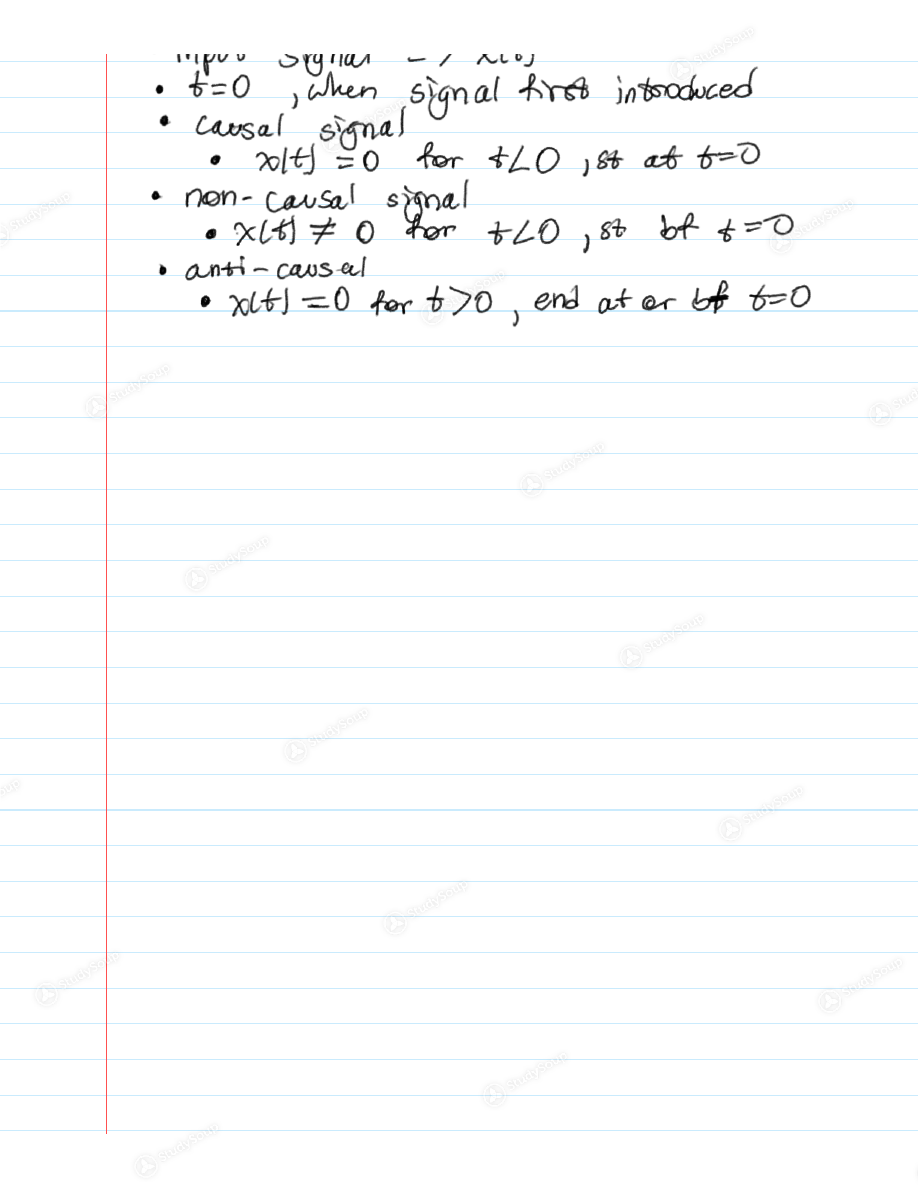 input signal -> x(t)
• t=0 , when signal first introduced
• causal signal
• x(t) = 0 for t<0 , st at t=0
• non-causal signal
• x(t) ≠ 0 for t<0 , st bf t=0
• anti-causal
• x(t) = 0 for t>0 , end at or bf t=0